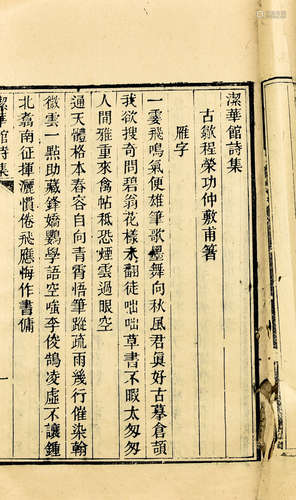 潔華館詩集
古歙程榮功仲敷甫著
雁字
一雲飛鳴氣便雄筆歌墨舞向秋風君眞好古摹倉頡
我欲搜奇問碧翁花樣未翻徒咄咄草書不暇太匆匆
人間雅重來禽帖秪恐煙雲過眼空
過天體格本春容自向青霄悟筆蹤疏雨幾行催染翰
微雲一點助藏鋒嬌鸚學語空嗤李俊鶻凌虛不讓鍾
北翥南征揮灑慣倦飛應悔作書傭
潔華館詩集
一